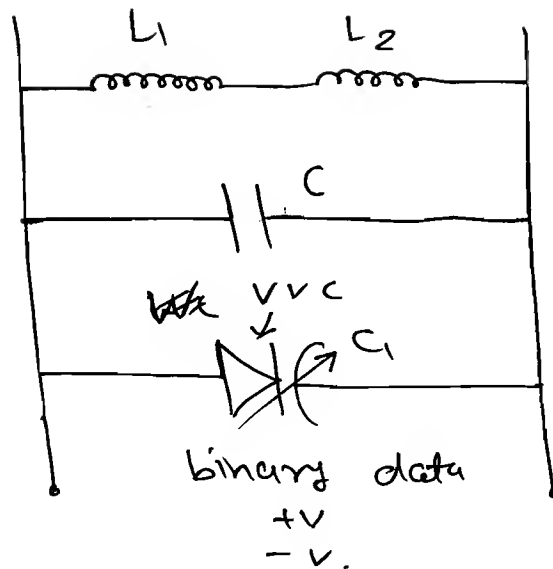 L1 L2
C
VVC
C1
binary data
+V
-V.